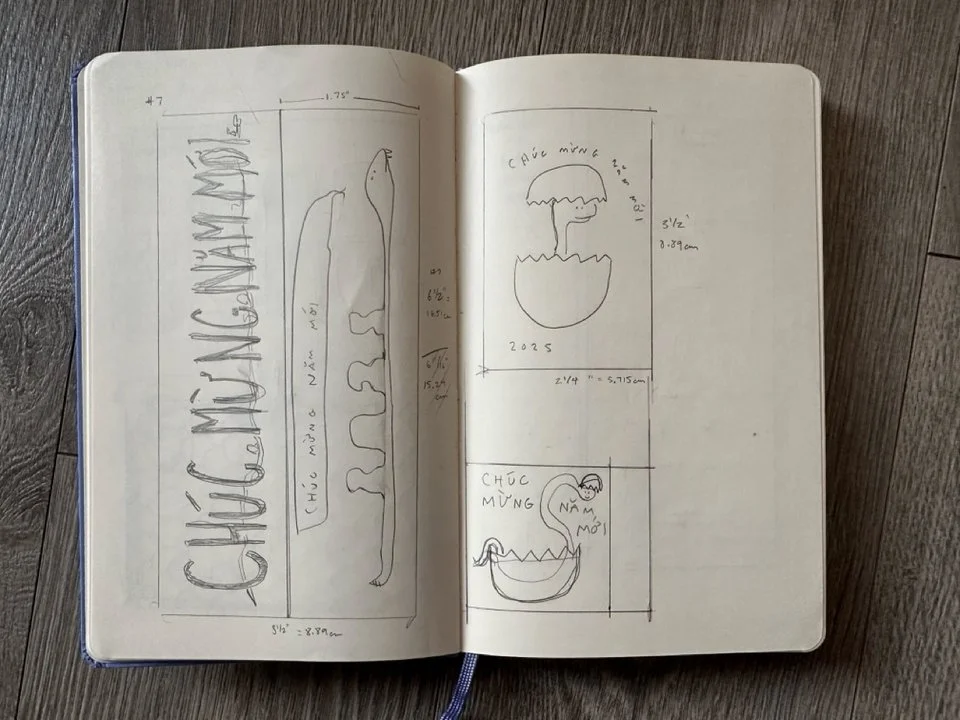 #7
1.75"
CHÚC MỪNG NĂM MỚI
CHÚC MỪNG NĂM MỚI
6 1/2" =
15.24
cm
3 1/2" = 8.89cm
CHÚC MỪNG NĂM MỚI
2025
3 1/2"
8.89cm
2 1/4 " = 5.715cm
CHÚC
MỪNG
NĂM
MỚI